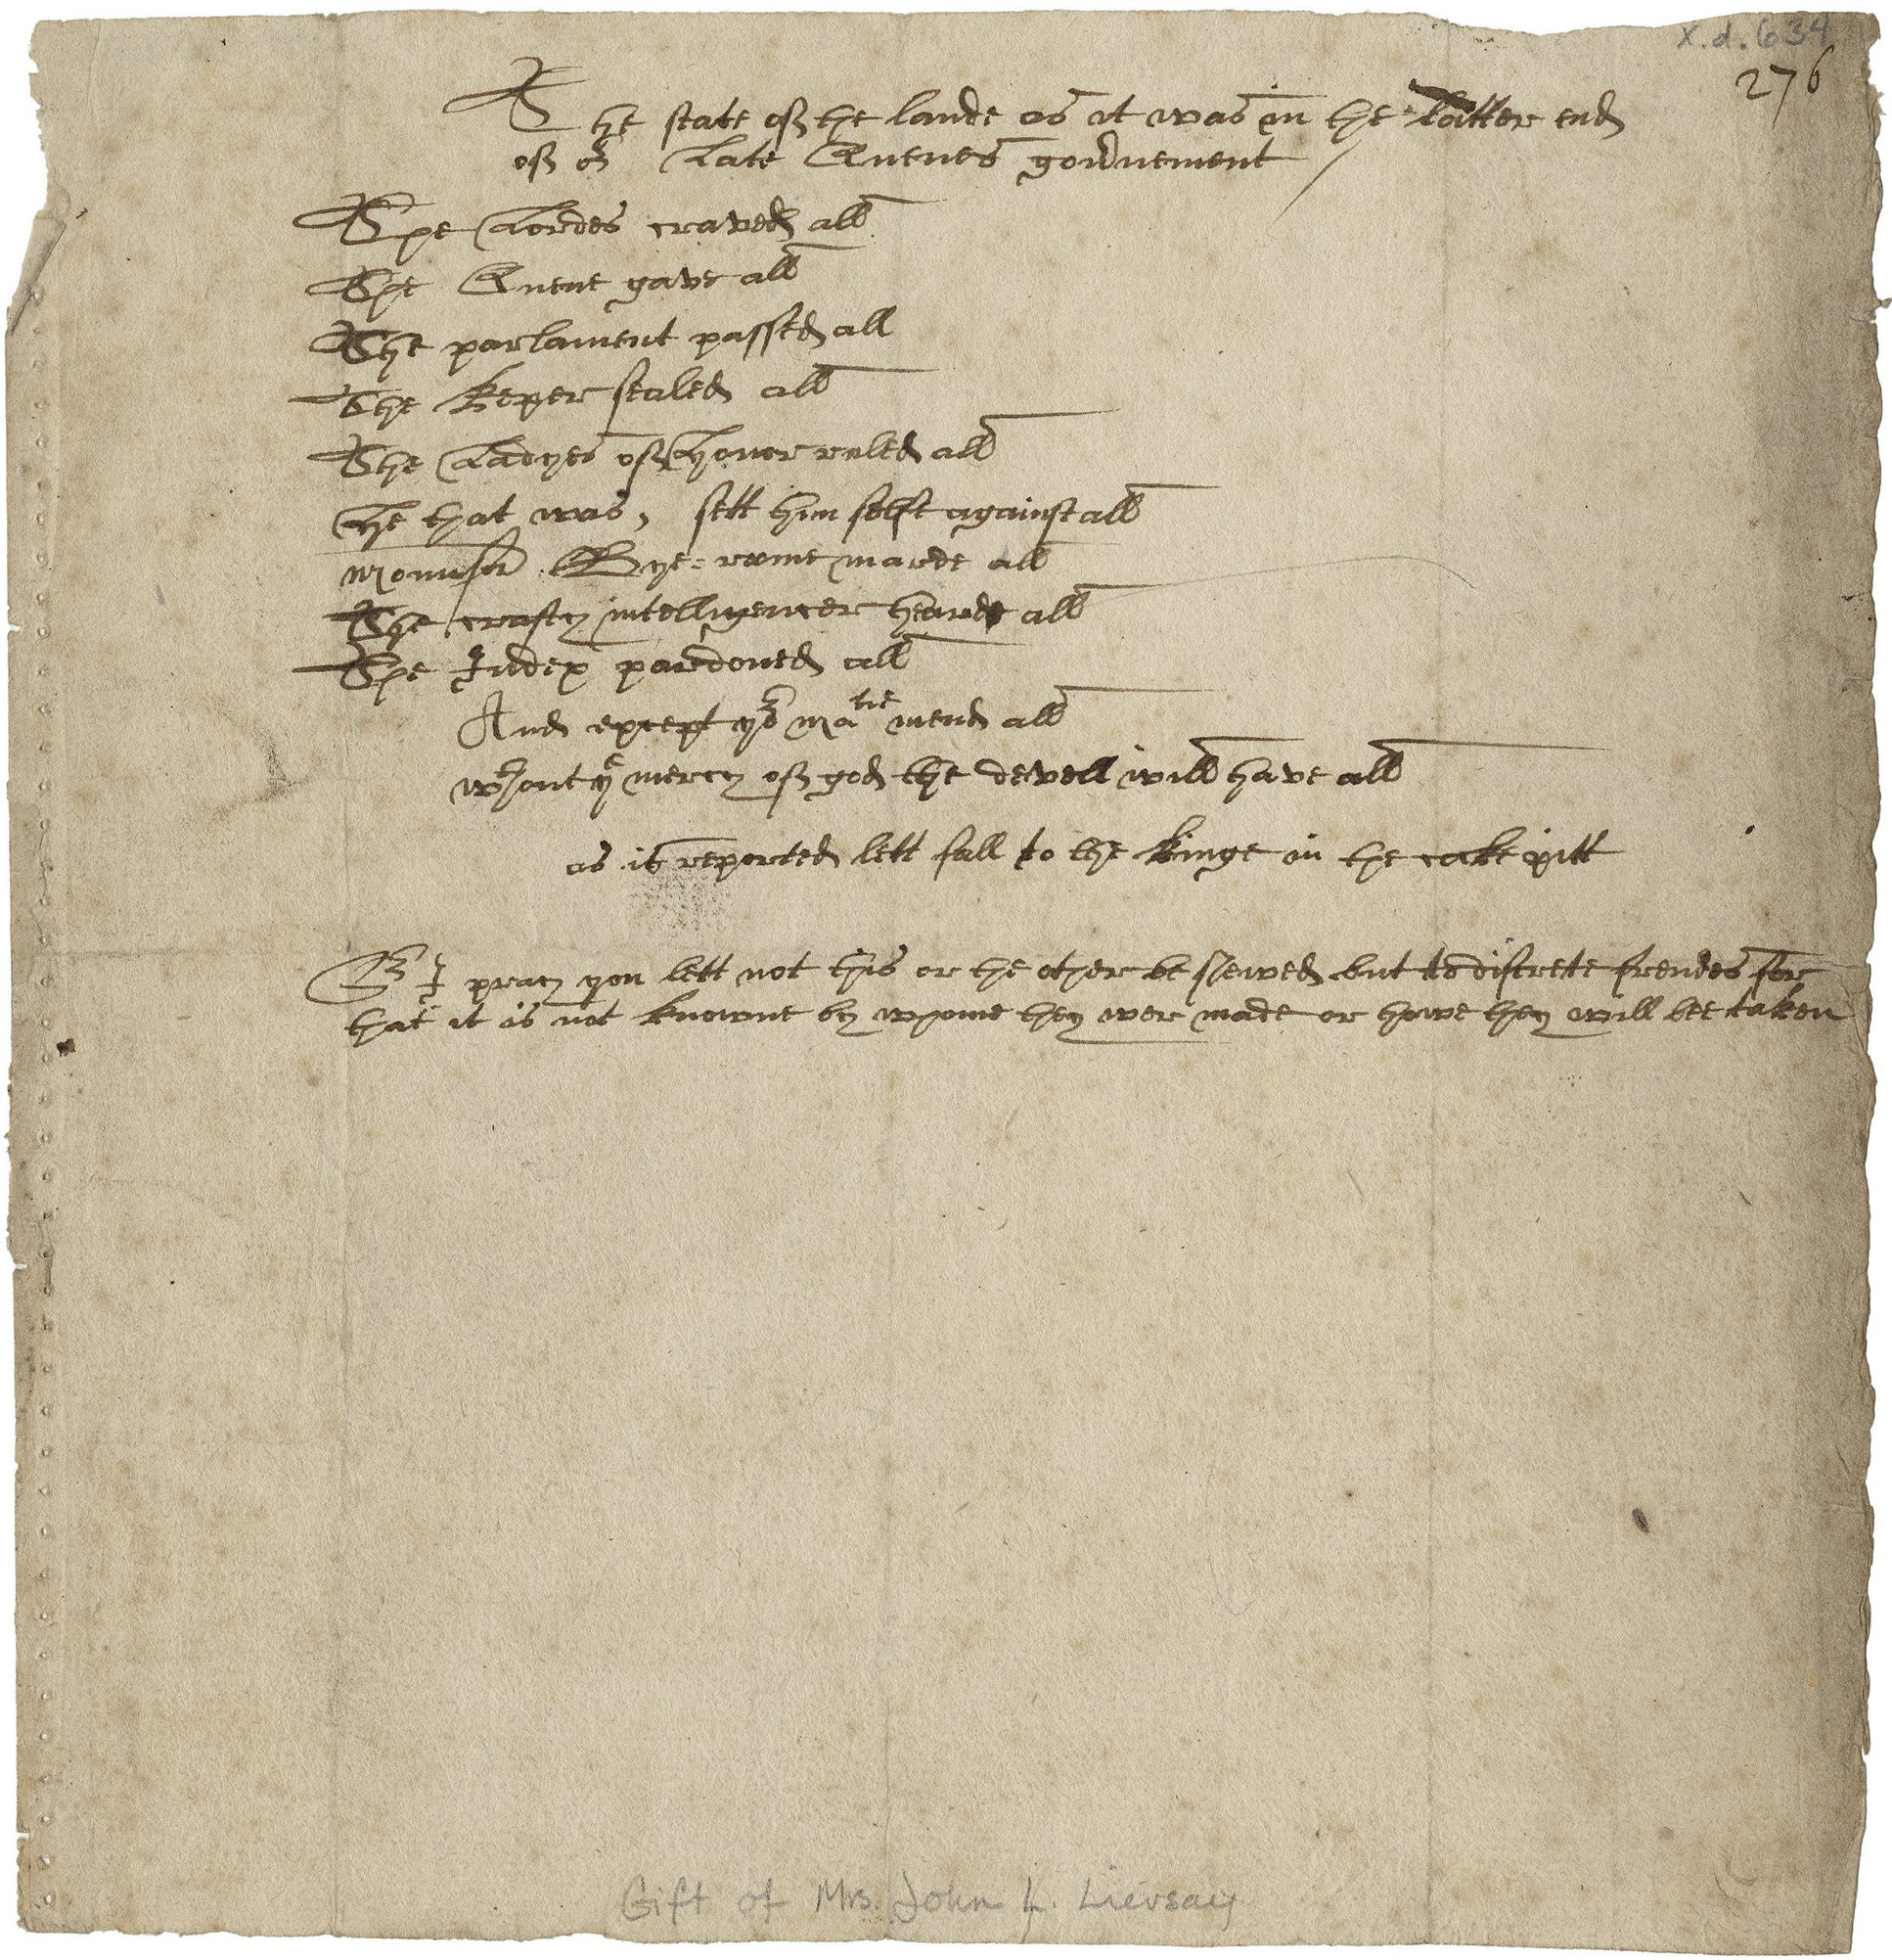 X.d.634
276
The state of the lande as it was in the latter end
of or Late Quenes gouernement
The Lordes craved all
The Quene gave all
The parlament passed all
The Keper sealed all
The Ladyes of Honor ruled all
He that was, sett him selfe against all
Bye = marde all
The crafty intelligencer hearde all
The Iudex pardoned all
And except yor Matie mend all
wthout ye mercy of god the devell will have all
as is reported lett fall to the Kinge in the pitt
Sr I pray you lett not this or the other be shewed but to discrete frendes for
that it is not knowne by whome they wer made or howe they will bee taken
Gift of Mrs. John L. Lievsay